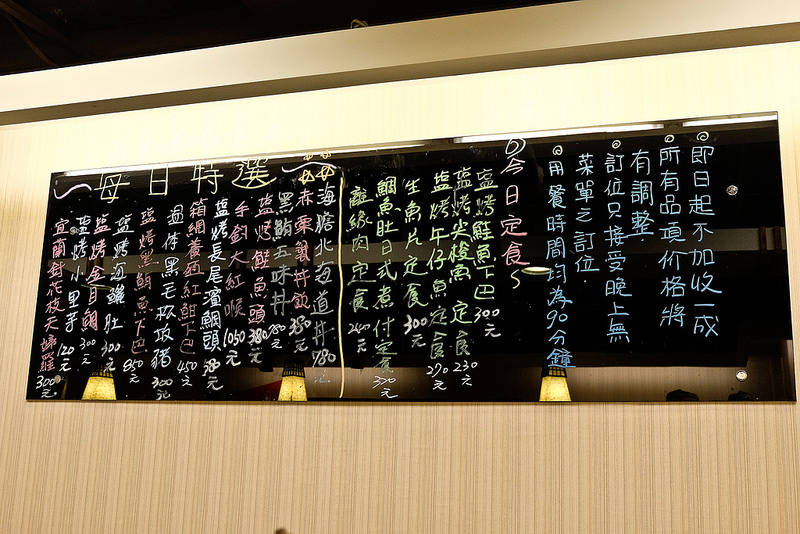 ◎即日起不加收一成
◎所有品項价格將
有調整.
◎訂位只接受晚上無
菜單之訂位.
◎用餐時間均為90分鐘
◎今日定食~
塩烤鮭魚下巴 300元
塩烤尖梭魚定食 230元
塩烤午仔魚定食 270元
生魚片定食 300元
鯛魚肚日式煮付定食 320元
離緣肉定食 240元
~每日特選~
海膽北海道丼 780元
赤栗蟹丼飯 380元
黑鮪五味丼 780元
塩烤鮭魚頭 380元
手釣大紅喉 1050元
塩烤長尾濱鯛頭 380元
箱網養殖紅魽下巴 450元
迴味黑毛松坂豬 300元
塩烤黑鯛魚下巴 250元
塩烤海鱺肚 300元
塩烤金目鯛 300元
塩烤小里芋 120元
宜蘭針花枝天婦羅 300元